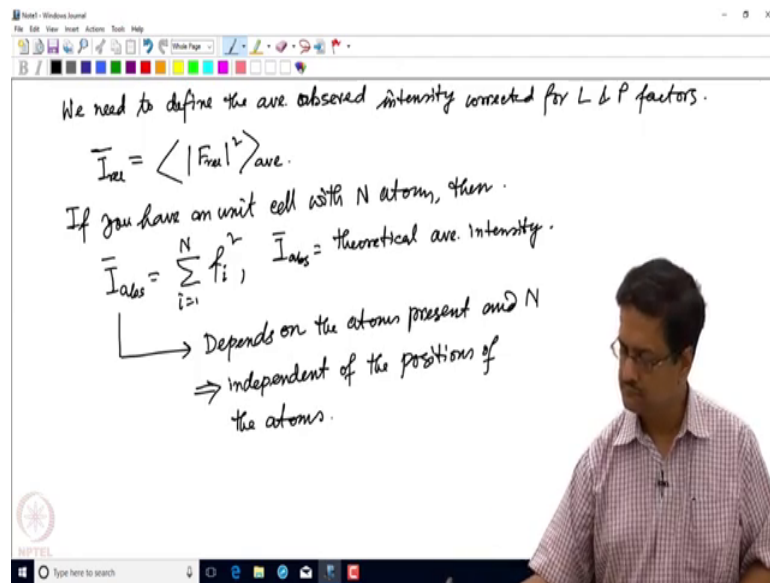 Note1 - Windows Journal
File Edit View Insert Actions Tools Help
Whole Page
B I
We need to define the ave. obseved intensity corrected for L & P factors.
I̅rel = ⟨|Frel|²⟩ave.
If you have an unit cell with N atoms, then.
I̅abs = Σ_{i=1}^{N} fi², I̅abs = theoretical ave. intensity.
→ Depends on the atoms present and N
⇒ independent of the positions of
the atoms.
NPTEL
Type here to search